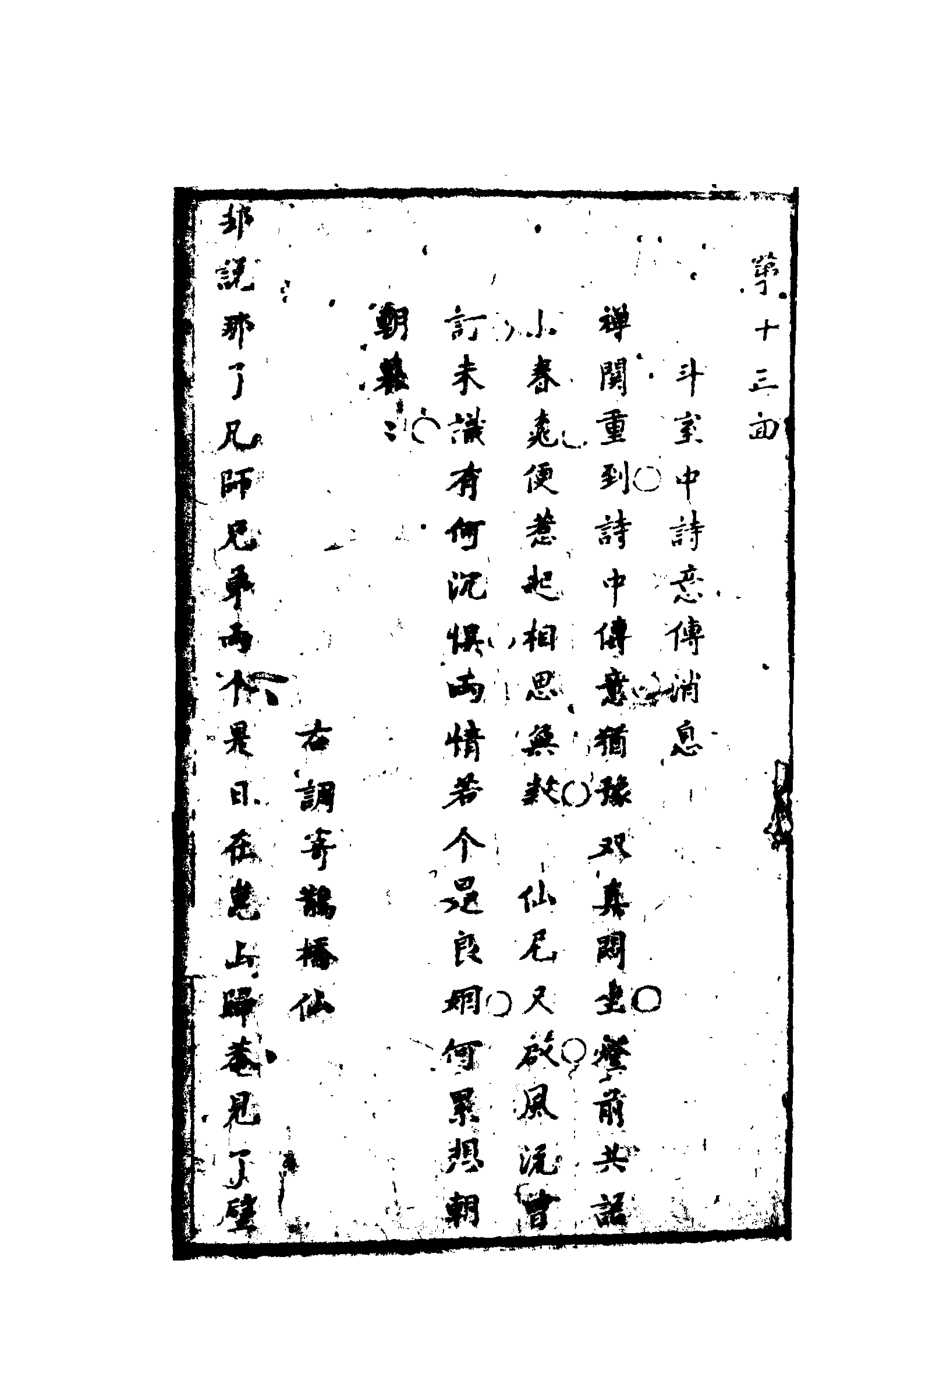 第十三回
斗室中詩意傳消息
禅関重到詩中傳意猶豫双真悶坐燈前共話
小春竜便惹起相思無数 仙尼又啟風流曹
訂未識有何沉悞両情若个是良姻何累想朝
朝暮〻
右調寄鵲橋仙
却說那了凡師兄弟両个是日在嵬山歸菴見了壁